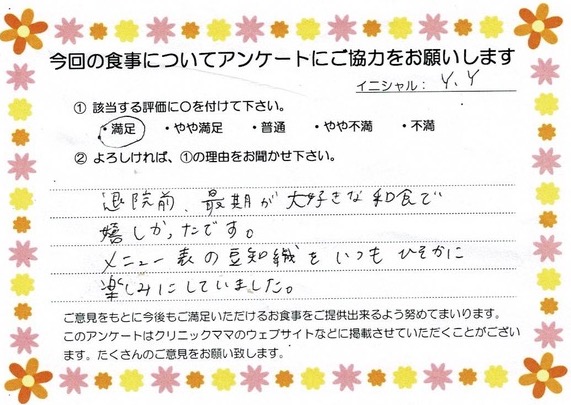 今回の食事についてアンケートにご協力をお願いします
イニシャル： Y.Y
① 該当する評価に○を付けて下さい。
・満足 ・やや満足 ・普通 ・やや不満 ・不満
② よろしければ、①の理由をお聞かせ下さい。
退院前、最期が大好きな和食で
嬉しかったです。
メニュー表の豆知識をいつもひそかに
楽しみにしていました。
ご意見をもとに今後もご満足いただけるお食事をご提供出来るよう努めてまいります。
このアンケートはクリニックママのウェブサイトなどに掲載させていただくことがござい
ます。たくさんのご意見をお願い致します。